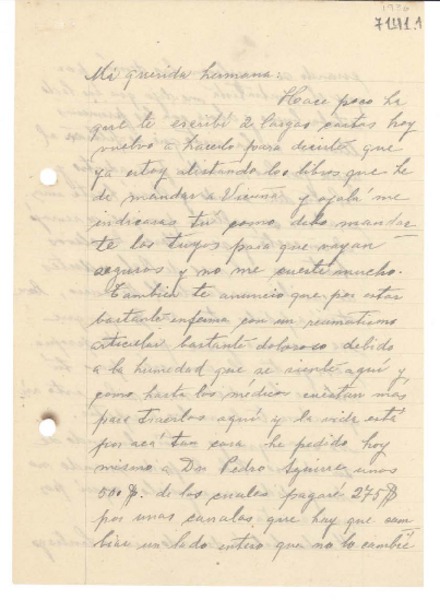 1936
71111.1
Mi querida hermana:
Hace poco ha
que te escribí 2 largas cartas hoy
vuelvo a hacerlo para decirte que
ya estoy alistando los libros que he
de mandar a Vicuña y ojalá me
indicaras tu como debo mandar
te los tuyos para que vayan
seguros y no me cueste mucho.
Tambien te anuncio que por estar
bastante enferma con un reumatismo
articular bastante doloroso debido
a la humedad que se siente aquí y
como hasta los médicos cuestan mas
para traerlos aquí y la vida está
por acá tan cara he pedido hoy
mismo a Don Pedro Aguirre unos
500 $. de los cuales pagaré 275 $
por unas canales que hay que cam
biar un lado entero que no lo cambié